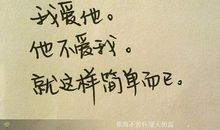 我爱他。
他不爱我。
就这样简单而已。